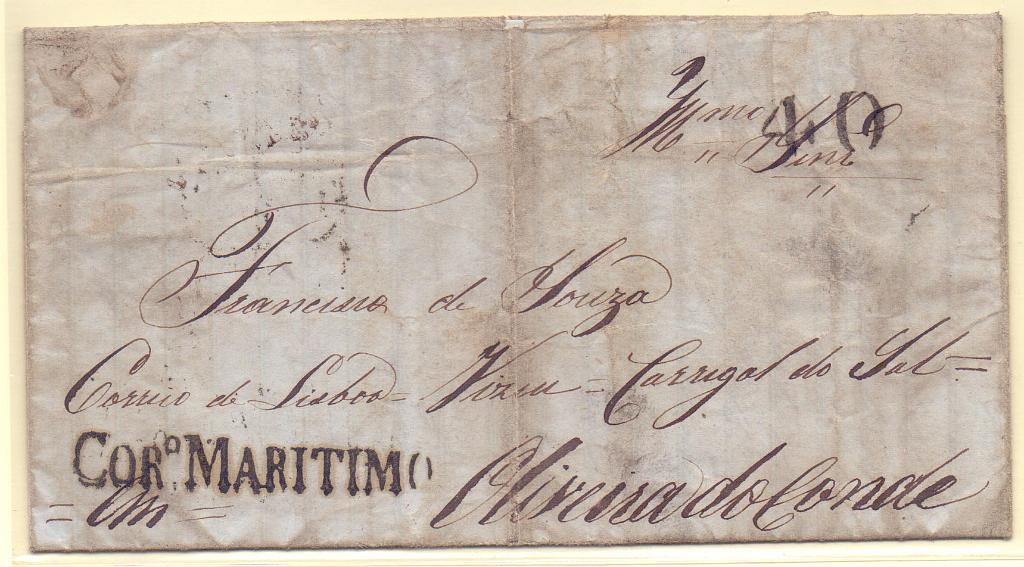 Illmo Snr 40
Francisco de Souza
Correio de Lisboa = Vizeu = Carregal do Sal =
CORO. MARITIMO
= Em = Oliveira do Conde